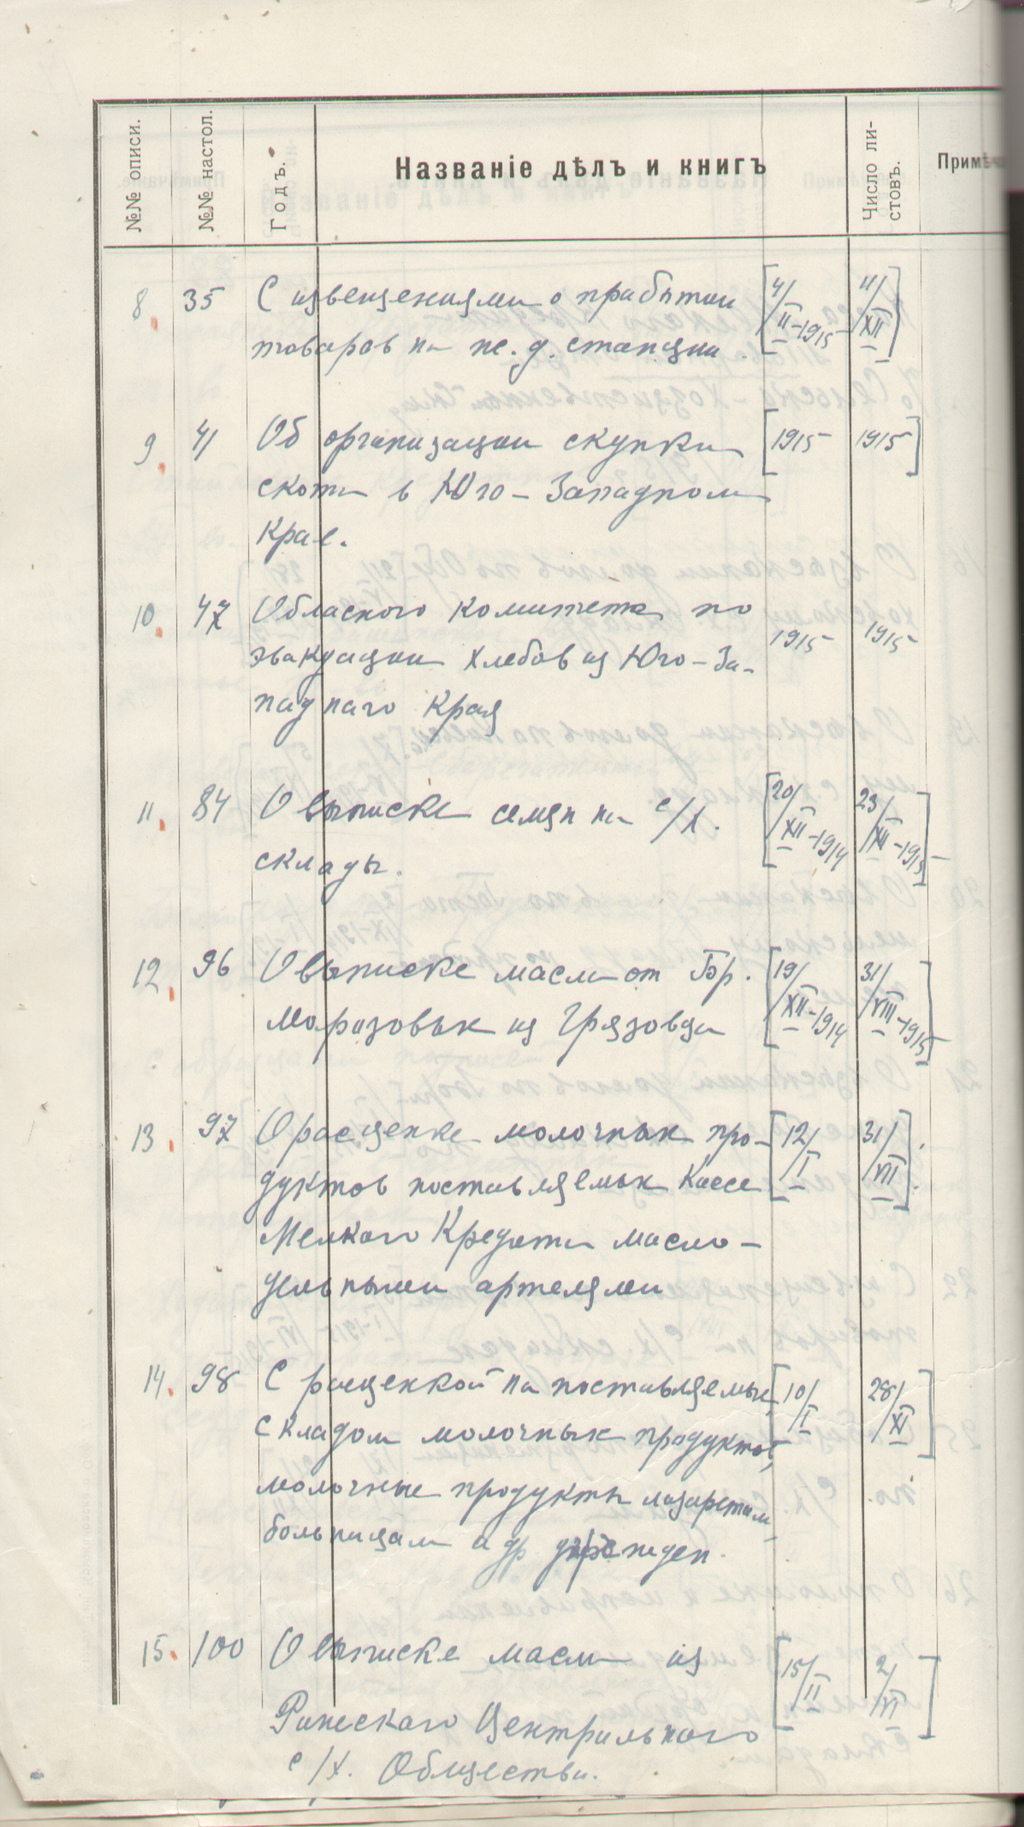 №№ описи. №№ настол. Годъ. Названіе дѣлъ и книгъ Число ли-стовъ. Примѣча
8. 35 С извещениями о прибытии [4/II-1915 11/XII]
товаров на ж. д. станции.
9. 41 Об организации скупки [1915 1915]
скота в Юго-Западном
Крае.
10. 47 Обласного комитета по 1915 1915
эвакуации хлебов из Юго-За-
паднаго Края
11. 84 О выписке семян на с/х. [20/XII-1914 23/XII-1915]
склады.
12. 96 О выписке масла от Бр. [19/XII-1914 31/VIII-1915]
Морозовых из Грязовца
13. 97 О расценке молочных про- [12/I 31/VII]
дуктов поставляемых Кассе
Мелкого Кредита масло-
дельными артелями
14. 98 С расценкой на поставляемые [10/I 28/XI]
складом молочных продуктов,
молочные продукты лазаретам,
больницам и др учрежден.
15. 100 О выписке масла из [15/II 2/VI]
Рижского Центрального
с/х. Общества.